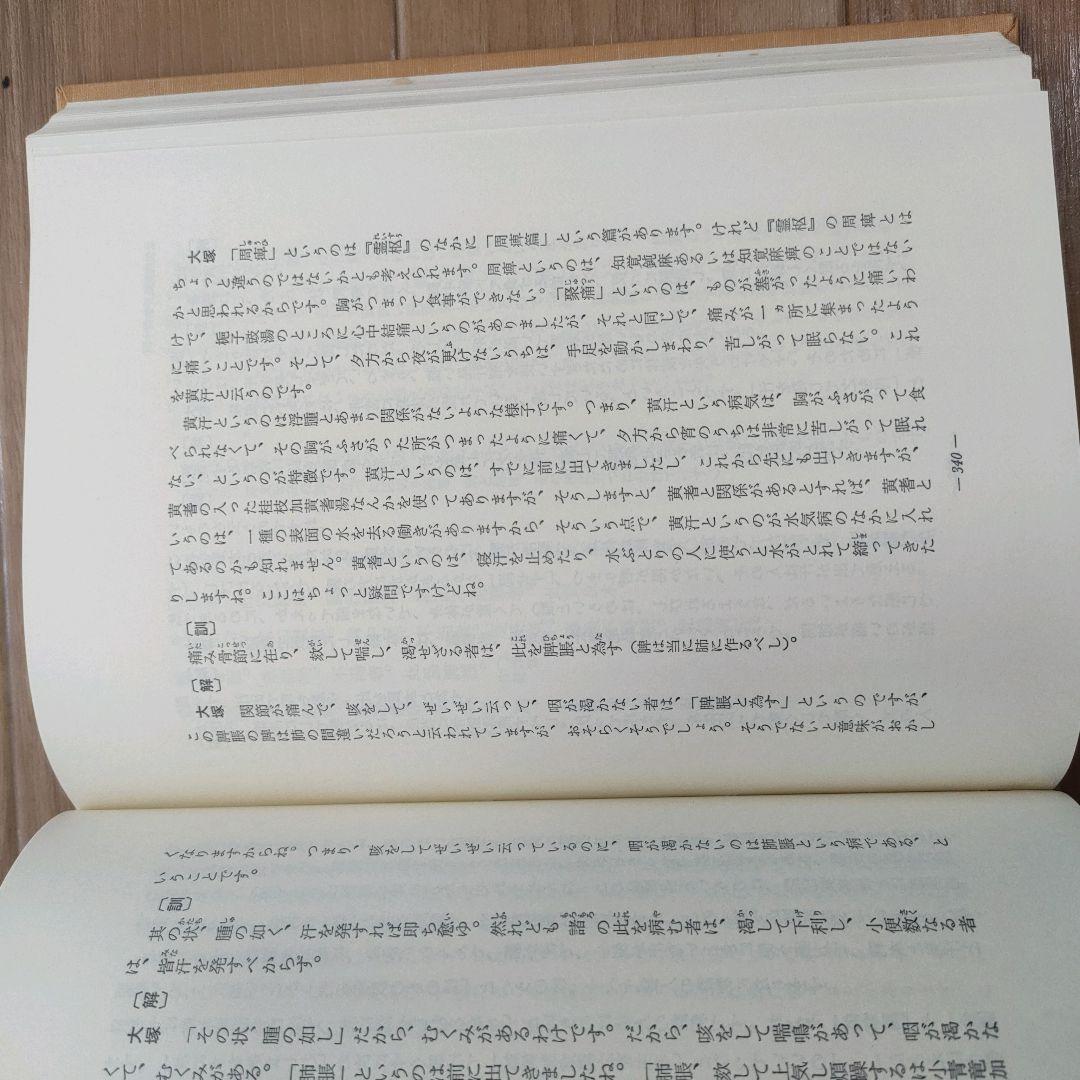 大塚 「周痺」というのは『霊枢』のなかに「周痺篇」という篇があります。けれど『霊枢』の周痺とは
ちょっと違うのではないかとも考えられます。周痺というのは、知覚鈍麻あるいは知覚麻痺のことではない
かと思われるからです。胸がつまって食事ができない。「聚痛」というのは、ものが塞がったように痛いわ
けで、梔子豉湯のところに心中結痛というのがありましたが、それと同じで、痛みが一ヵ所に集まったよう
に痛いことです。そして、夕方から夜が更けないうちは、手足を動かしまわり、苦しがって眠らない。これ
を黄汗と云うのです。
黄汗というのは浮腫とあまり関係がないような様子です。つまり、黄汗という病気は、胸がふさがって食
べられなくて、その胸がふさがった所がつまったように痛くて、夕方から宵のうちは非常に苦しがって眠れ
ない、というのが特徴です。黄汗というのは、すでに前に出てきましたし、これから先にも出てきますが、
黄耆の入った桂枝加黄耆湯なんかを使ってありますが、そうしますと、黄耆と関係があるとすれば、黄耆と
いうのは、一種の表面の水を去る働きがありますから、そういう点で、黄汗というのが水気病のなかに入れ
てあるのかも知れません。黄耆というのは、寝汗を止めたり、水ぶとりの人に使うと水がとれて締ってきた
りしますね。ここはちょっと疑問ですけどね。
〔訓〕
痛み骨節に在り、欬して喘し、渇せざる者は、此を脾脹と為す（脾は当に肺に作るべし）。
〔解〕
大塚 関節が痛んで、咳をして、ぜいぜい云って、咽が渇かない者は、「脾脹と為す」というのですが、
この脾脹の脾は肺の間違いだろうと云われていますが、おそらくそうでしょう。そうでないと意味がおかし
― 340 ―
くなりますからね。つまり、咳をしてぜいぜい云っているのに、咽が渇かないのは肺脹という病である、と
いうことです。
〔訓〕
其の状、腫の如く、汗を発すれば即ち愈ゆ。然れども諸の此を病む者は、渇して下利し、小便数なる者
は、皆汗を発すべからず。
〔解〕
大塚 「その状、腫の如し」だから、むくみがあるわけです。だから、咳をして喘鳴があって、咽が渇かな
くて、むくみがある。「肺脹」というのは前に出てきましたね。「肺脹、欬して上気し煩躁するは小青竜加